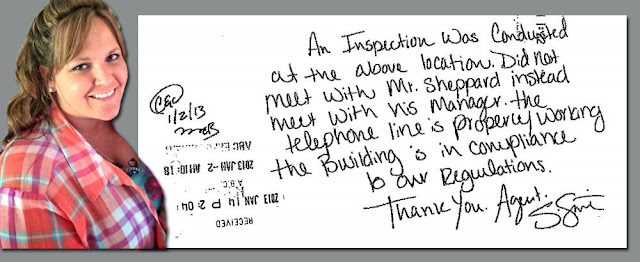 An Inspection Was Conducted
at the above location. Did not
meet with Mr. Sheppard instead
meet with his Manager. the
telephone line is propercy working
the Building is in compliance
to our Regulations.
Thank You. Agent.
1/2/13
2013 JAN -2 AM 10: 18
2013 JAN 14 P 2: 04
RECEIVED